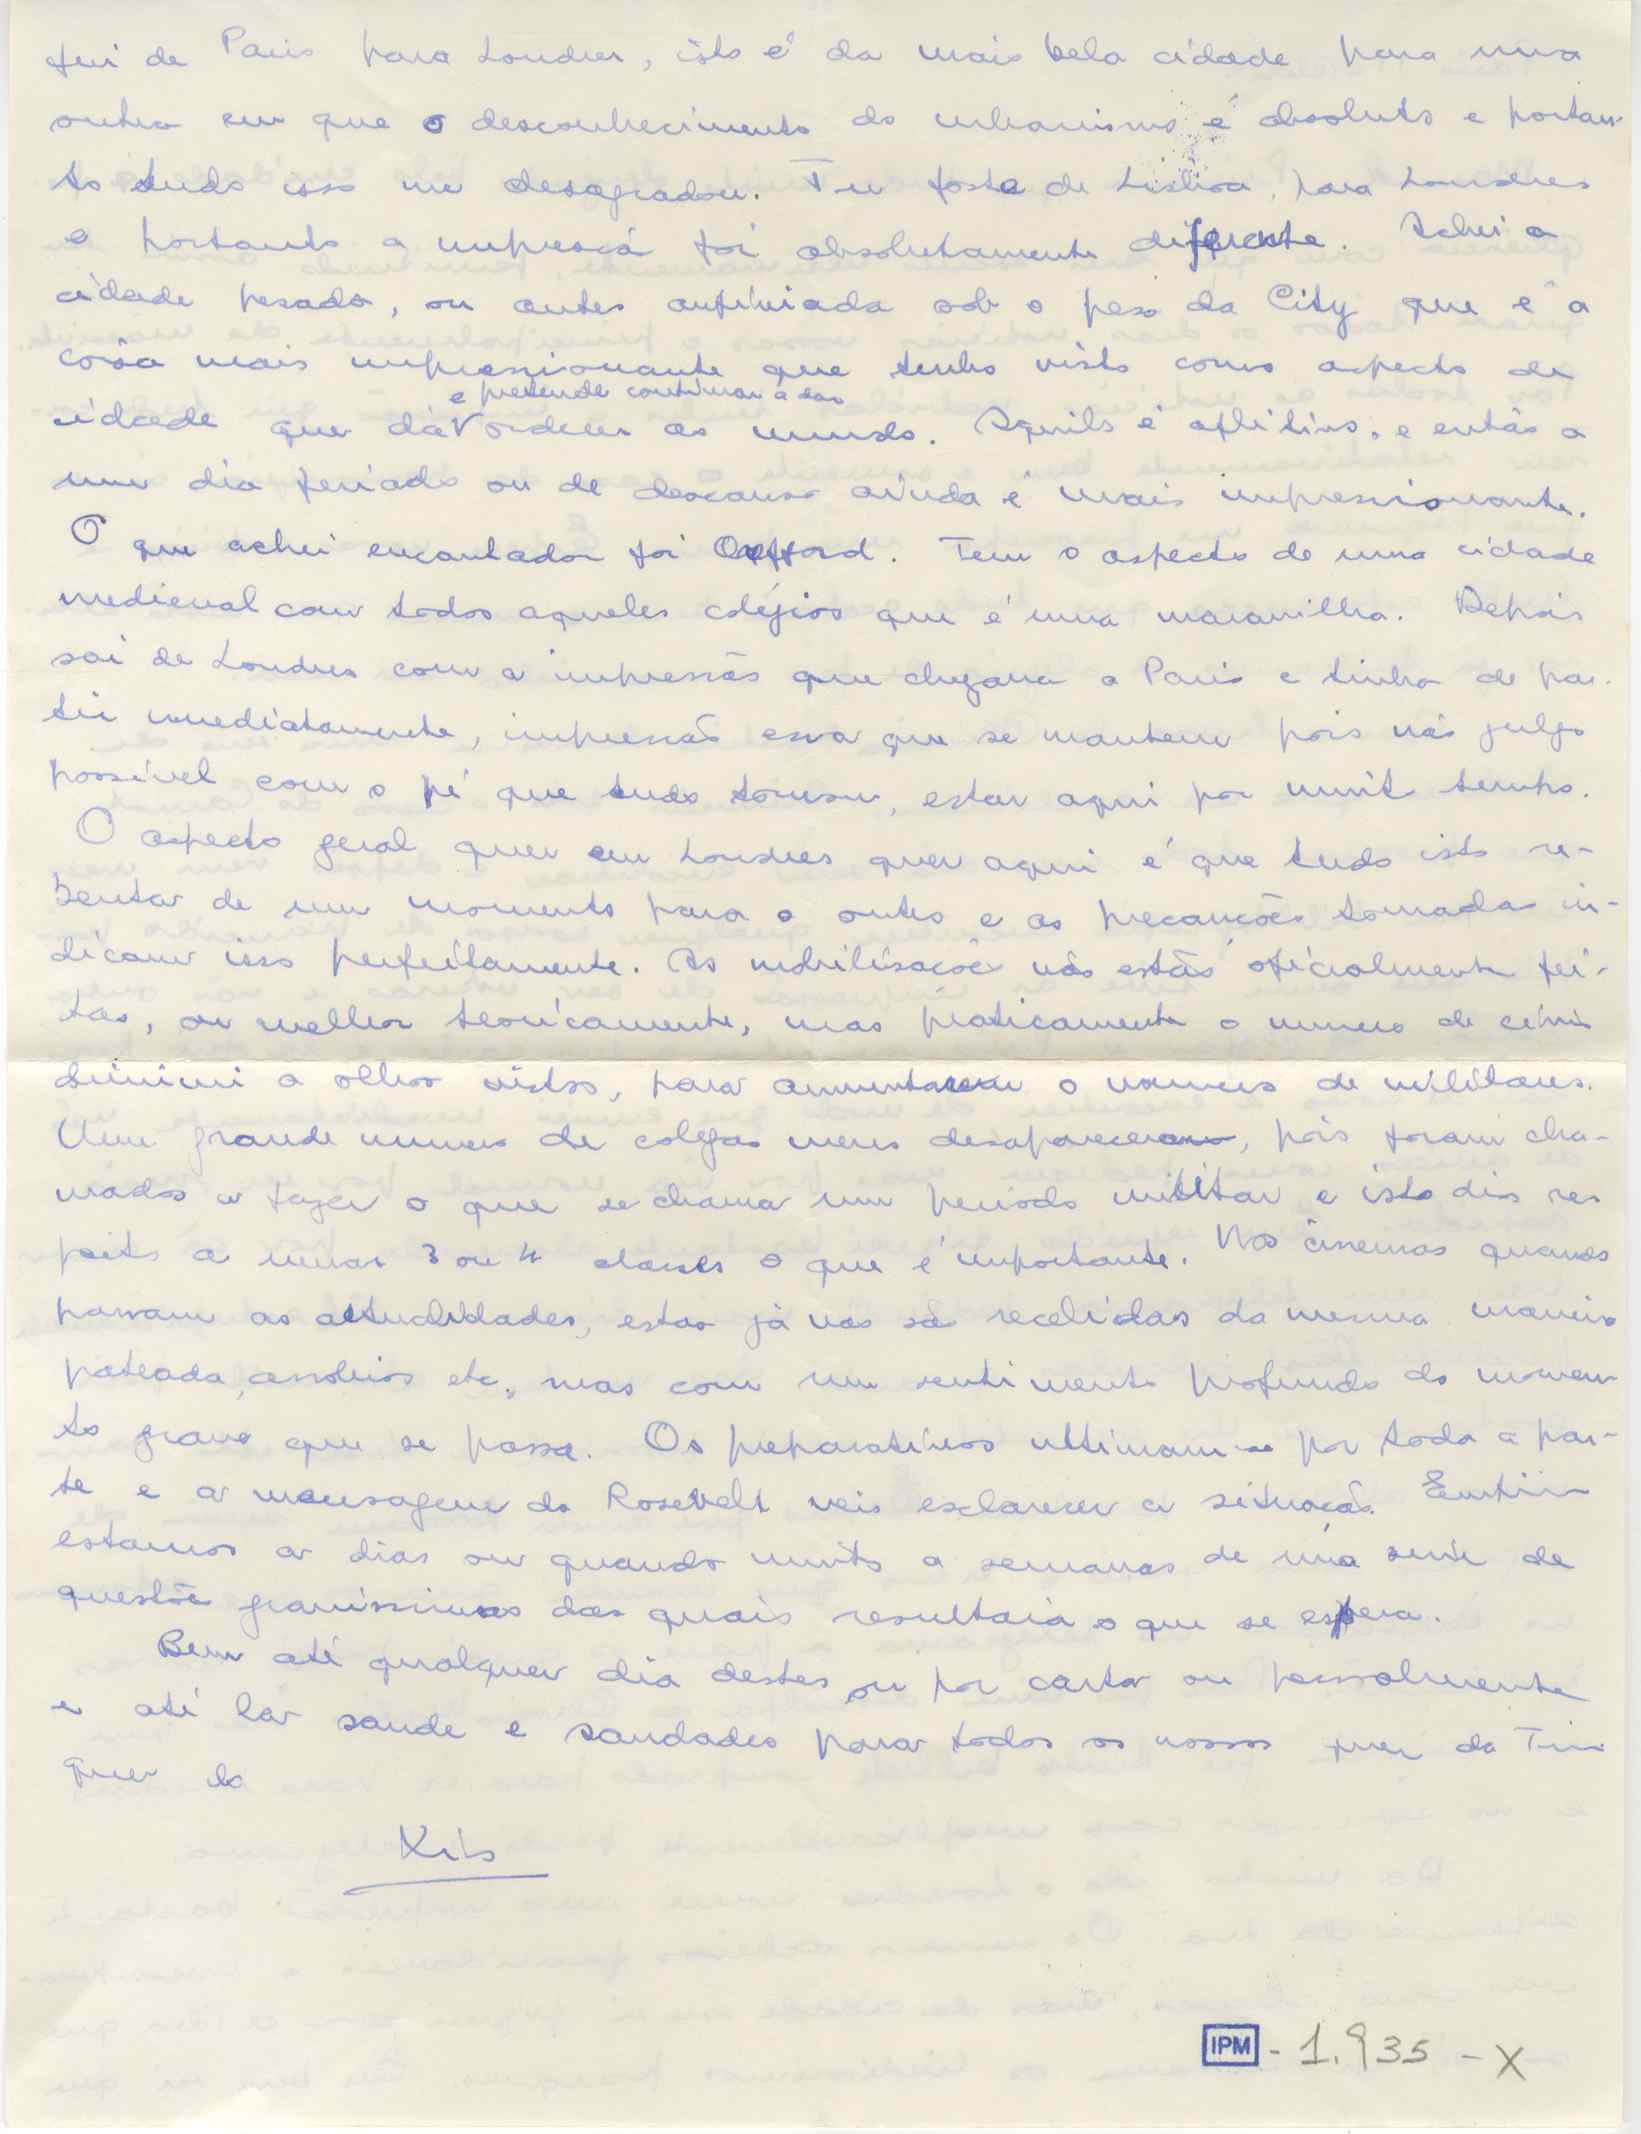 fui de Paris para Londres, isto é da mais bela cidade para uma
outra em que o desconhecimento do urbanismo é absoluto e portan-
to tudo isso me desagradou. Tu foste de Lisboa, para Londres
e portanto a impressã foi absolutamente diferente. Achei a
cidade pesada, ou antes oprimida sob o peso da City que é a
coisa mais impressionante que tenho visto como aspecto de
e pretende continuar a dar
cidade que dá V ordem ao mundo. Aquilo é aflitivo, e então a
um dia feriado ou de descanso ainda é mais impressionante.
O que achei encantador foi Oxford. Tem o aspecto de uma cidade
medieval com todos aqueles colégios que é uma maravilha. Depois
sai de Londres com a impressão que chegava a Paris e tinha de par-
tir imediatamente, impressão essa que se mantem pois não julgo
possível com o pé que tudo tomou, estar aqui por muit tempo.
O aspecto geral quer em Londres quer aqui é que tudo isto re-
bentar de um momento para o outro e as precauções tomadas in-
dicam isso perfeitamente. As mobilisações não estão oficialmente fei-
tas, ou melhor teoricamente, mas praticamente o numero de civis
diminui a olhos vistos, para aumentarem o numero de militares.
Um grande numero de colegas meus desapareceram, pois foram cha-
mados a fazer o que se chama um periodo militar e isto diz res
peito a umas 3 ou 4 classes o que é importante. Nos cinemas quando
passam as actualidades, estas já não são recebidas da mesma maneira
pateada, assobios etc., mas com um sentimento profundo do momen-
to grave que se passa. Os preparativos ultimam-se por toda a par-
te e a mensagem do Rosevelt veio esclarecer a situação. Enfim
estamos a dias ou quando muito a semanas de uma serie de
questões gravissimas das quais resultará o que se espera.
Bem até qualquer dia destes ou por carta ou pessoalmente
e até lá saude e saudades para todos os nossos quer da
quer do
IPM - 1.935 - X